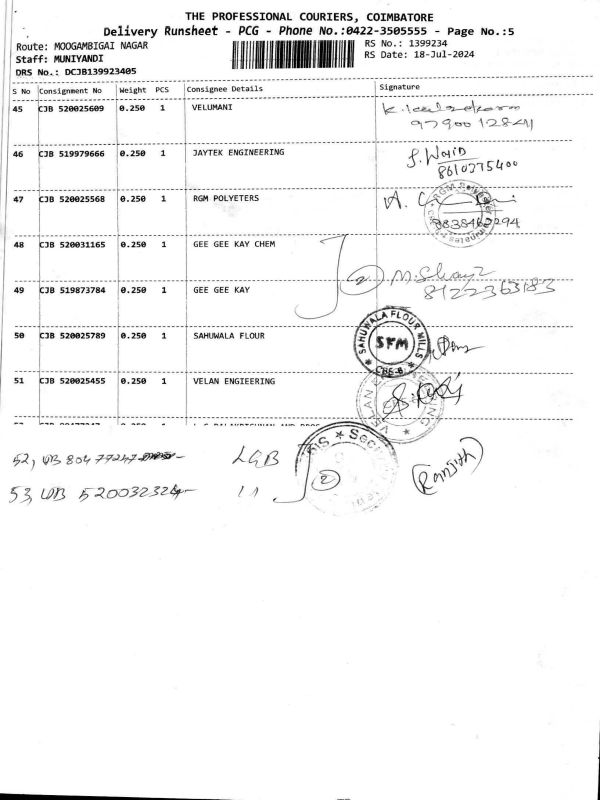 THE PROFESSIONAL COURIERS, COIMBATORE
Delivery Runsheet - PCG - Phone No.:0422-3505555 - Page No.:5
Route: MOOGAMBIGAI NAGAR RS No.: 1399234
Staff: MUNIYANDI RS Date: 18-Jul-2024
DRS No.: DCJB139923405
S No Consignment No Weight PCS Consignee Details Signature
45 CJB 520025609 0.250 1 VELUMANI
97900 12841
46 CJB 519979666 0.250 1 JAYTEK ENGINEERING
8610275400
47 CJB 520025568 0.250 1 RGM POLYETERS
48 CJB 520031165 0.250 1 GEE GEE KAY CHEM
2
8122363183
49 CJB 519873784 0.250 1 GEE GEE KAY
50 CJB 520025789 0.250 1 SAHUWALA FLOUR
SAHUWALA FLOUR MILLS
SFM
CBE-8
51 CJB 520025455 0.250 1 VELAN ENGIEERING
52, CJB 80477247 LGB
53, CJB 520032324 2 (Ranjith)